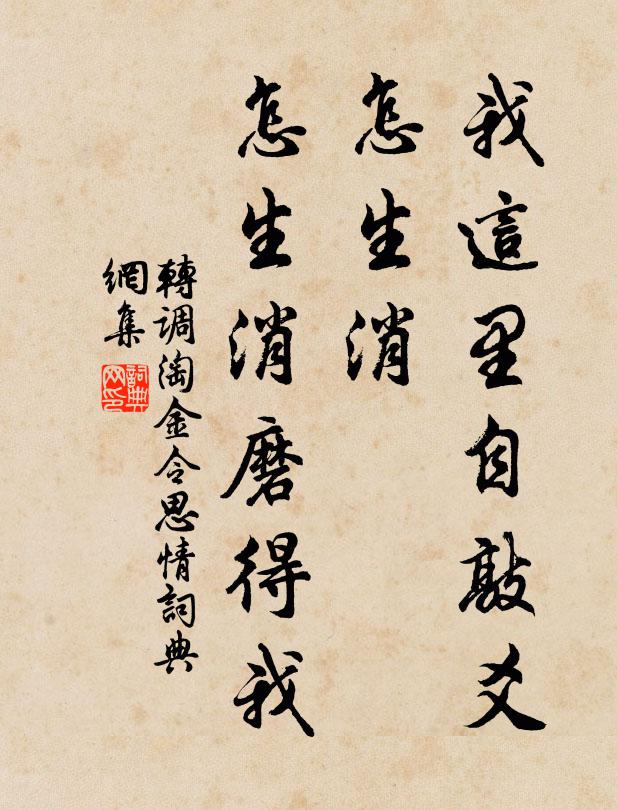 我這里自敲爻
怎生消
怎生消磨得我
轉調淘金令思情詞典
網集
詞典
网印